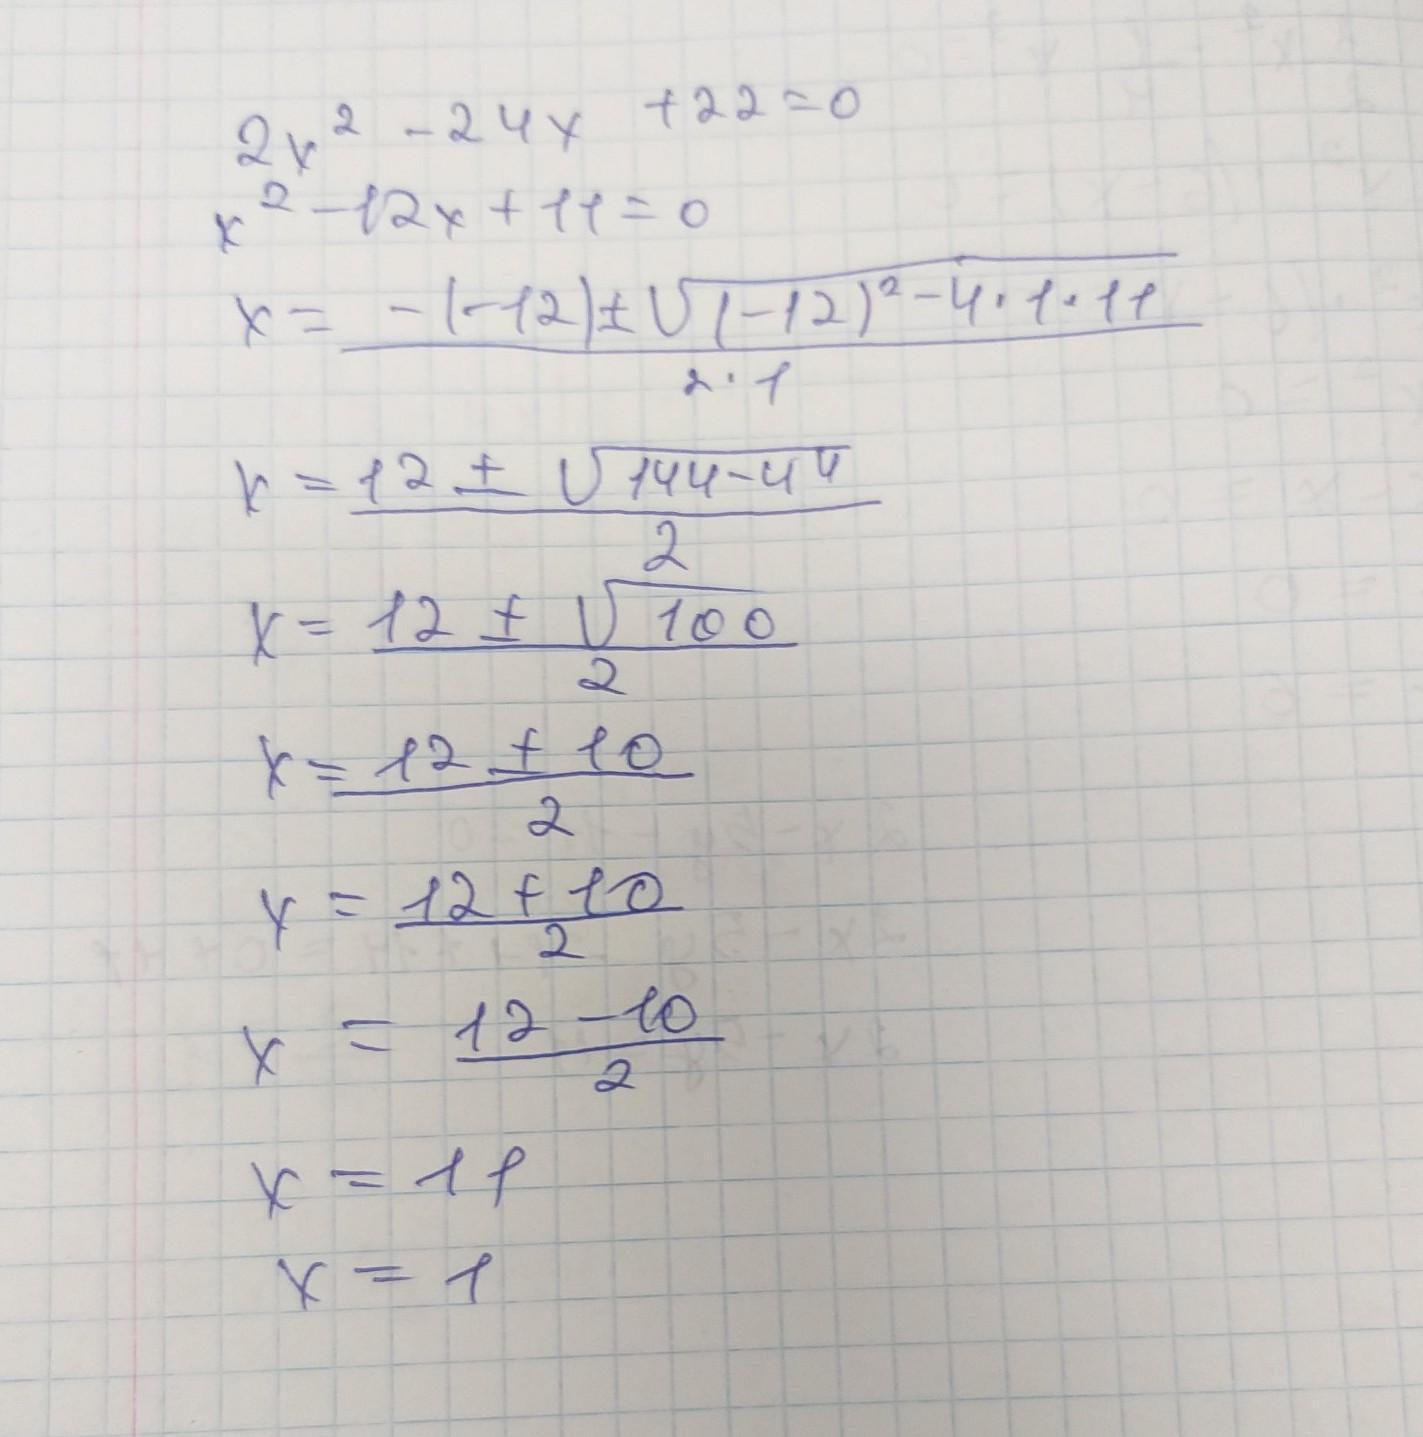 2x² - 24x + 22 = 0
x² - 12x + 11 = 0
x = (-(-12) ± √((-12)² - 4·1·11)) / (2·1)
x = (12 ± √(144 - 44)) / 2
x = (12 ± √100) / 2
x = (12 ± 10) / 2
x = (12 + 10) / 2
x = (12 - 10) / 2
x = 11
x = 1